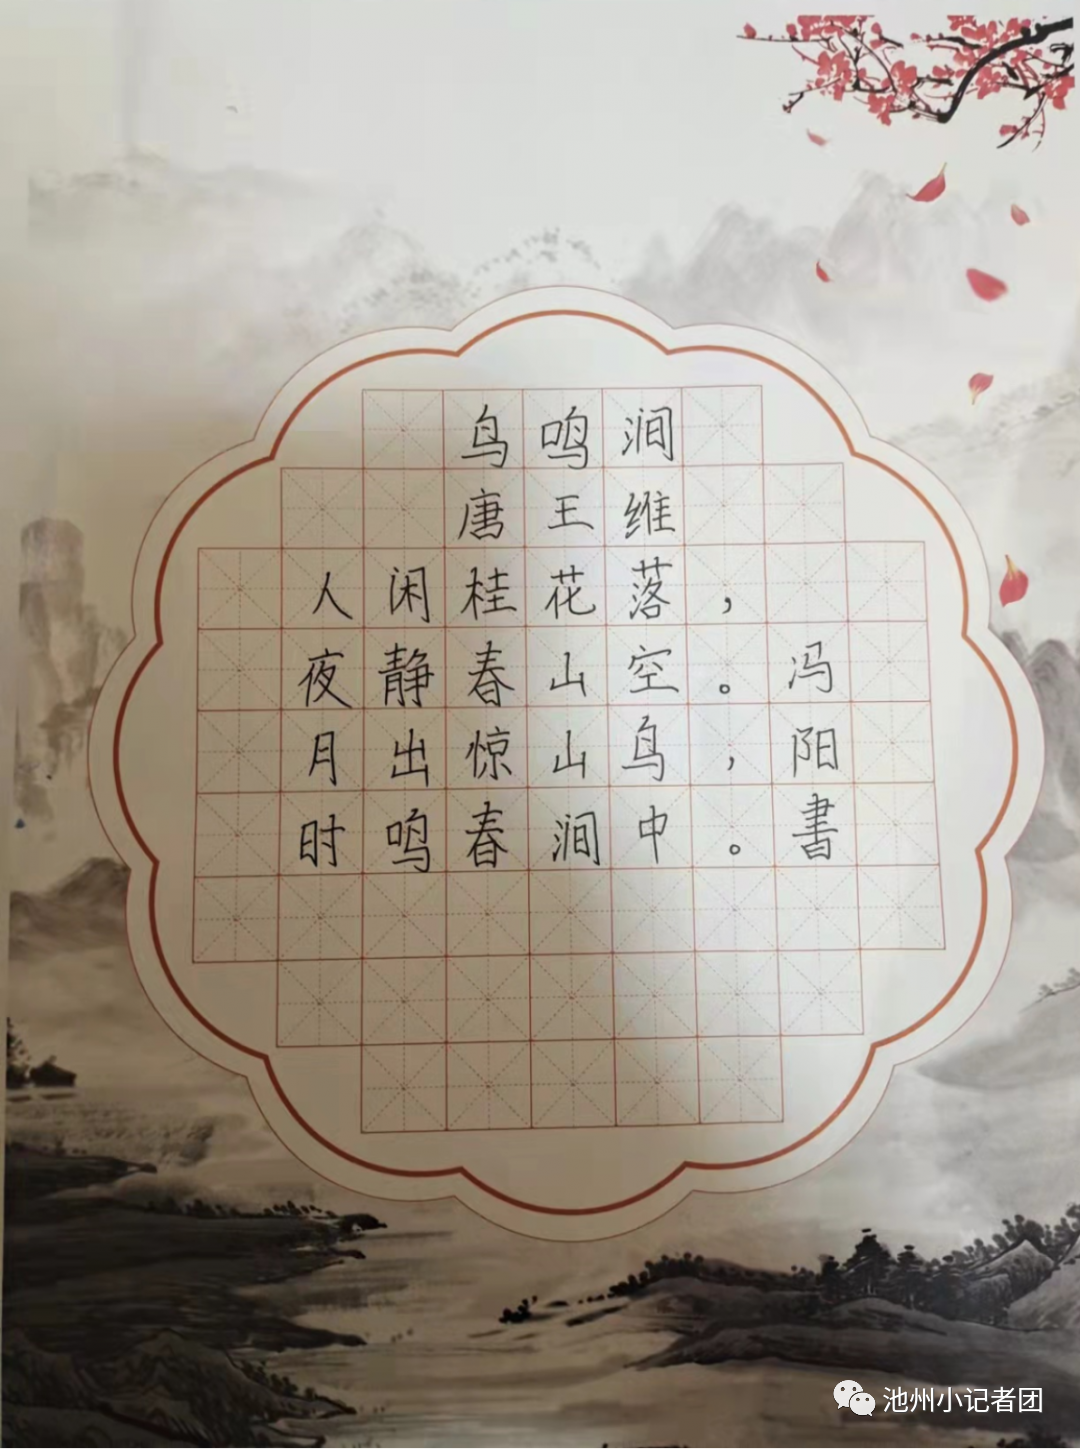 鸟鸣涧
唐王维
人闲桂花落，
夜静春山空。
月出惊山鸟，
时鸣春涧中。
冯阳書
池州小记者团